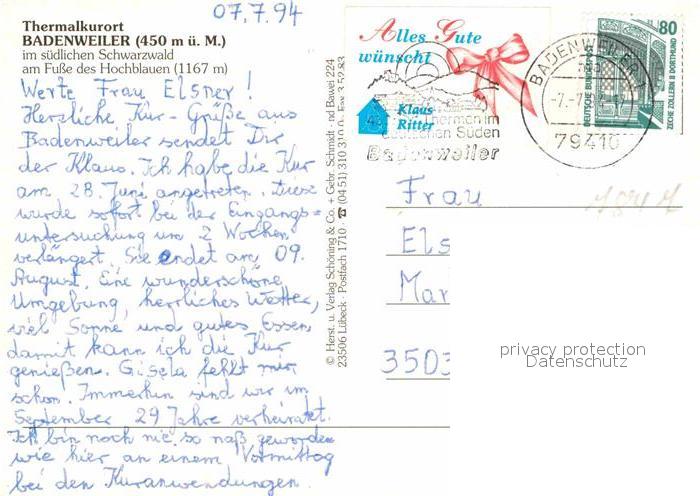 07.7.94
Thermalkurort
BADENWEILER (450 m ü. M.)
im südlichen Schwarzwald
am Fuße des Hochblauen (1167 m)
Werte Frau Elsner!
Herzliche Kur-Grüße aus
Badenweiler sendet Ihr
der Klaus. Ich habe die Kur
am 28. Juni angetreten. Diese
wurde sofort bei der Eingangs=
untersuchung um 2 Wochen
verlängert. Sie endet am 09.
August. Eine wunderschöne
Umgebung, herrliches Wetter,
viel Sonne und gutes Essen
damit kann ich die Kur
genießen. Gisela fehlt mir
schon. Immerhin sind wir im
September 29 Jahre verheiratet.
Ich bin noch nie so naß geworden
wie hier an einem Vormittag
bei den Kuranwendungen.
© Herst. u. Verlag Schöning & Co. + Gebr. Schmidt
23506 Lübeck · Postfach 1710 · ☎ (04 51) 310
nd Bawei 224
Alles Gute
wünscht
Klaus
Ritter
Thermen im
deutschen Süden
Badenweiler
BADENWEILER 1
79410
80
DEUTSCHE BUNDESPOST
ZECHE ZOLLERN II DORTMUND
Frau
Els
Mar
3503
privacy protection
Datenschutz